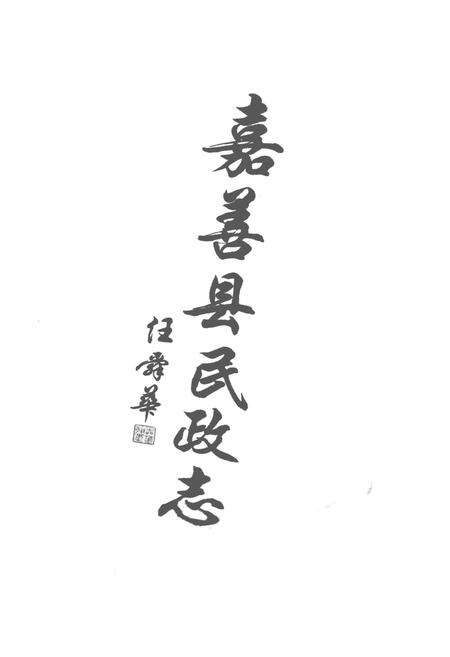 嘉善县民政志
任舜华